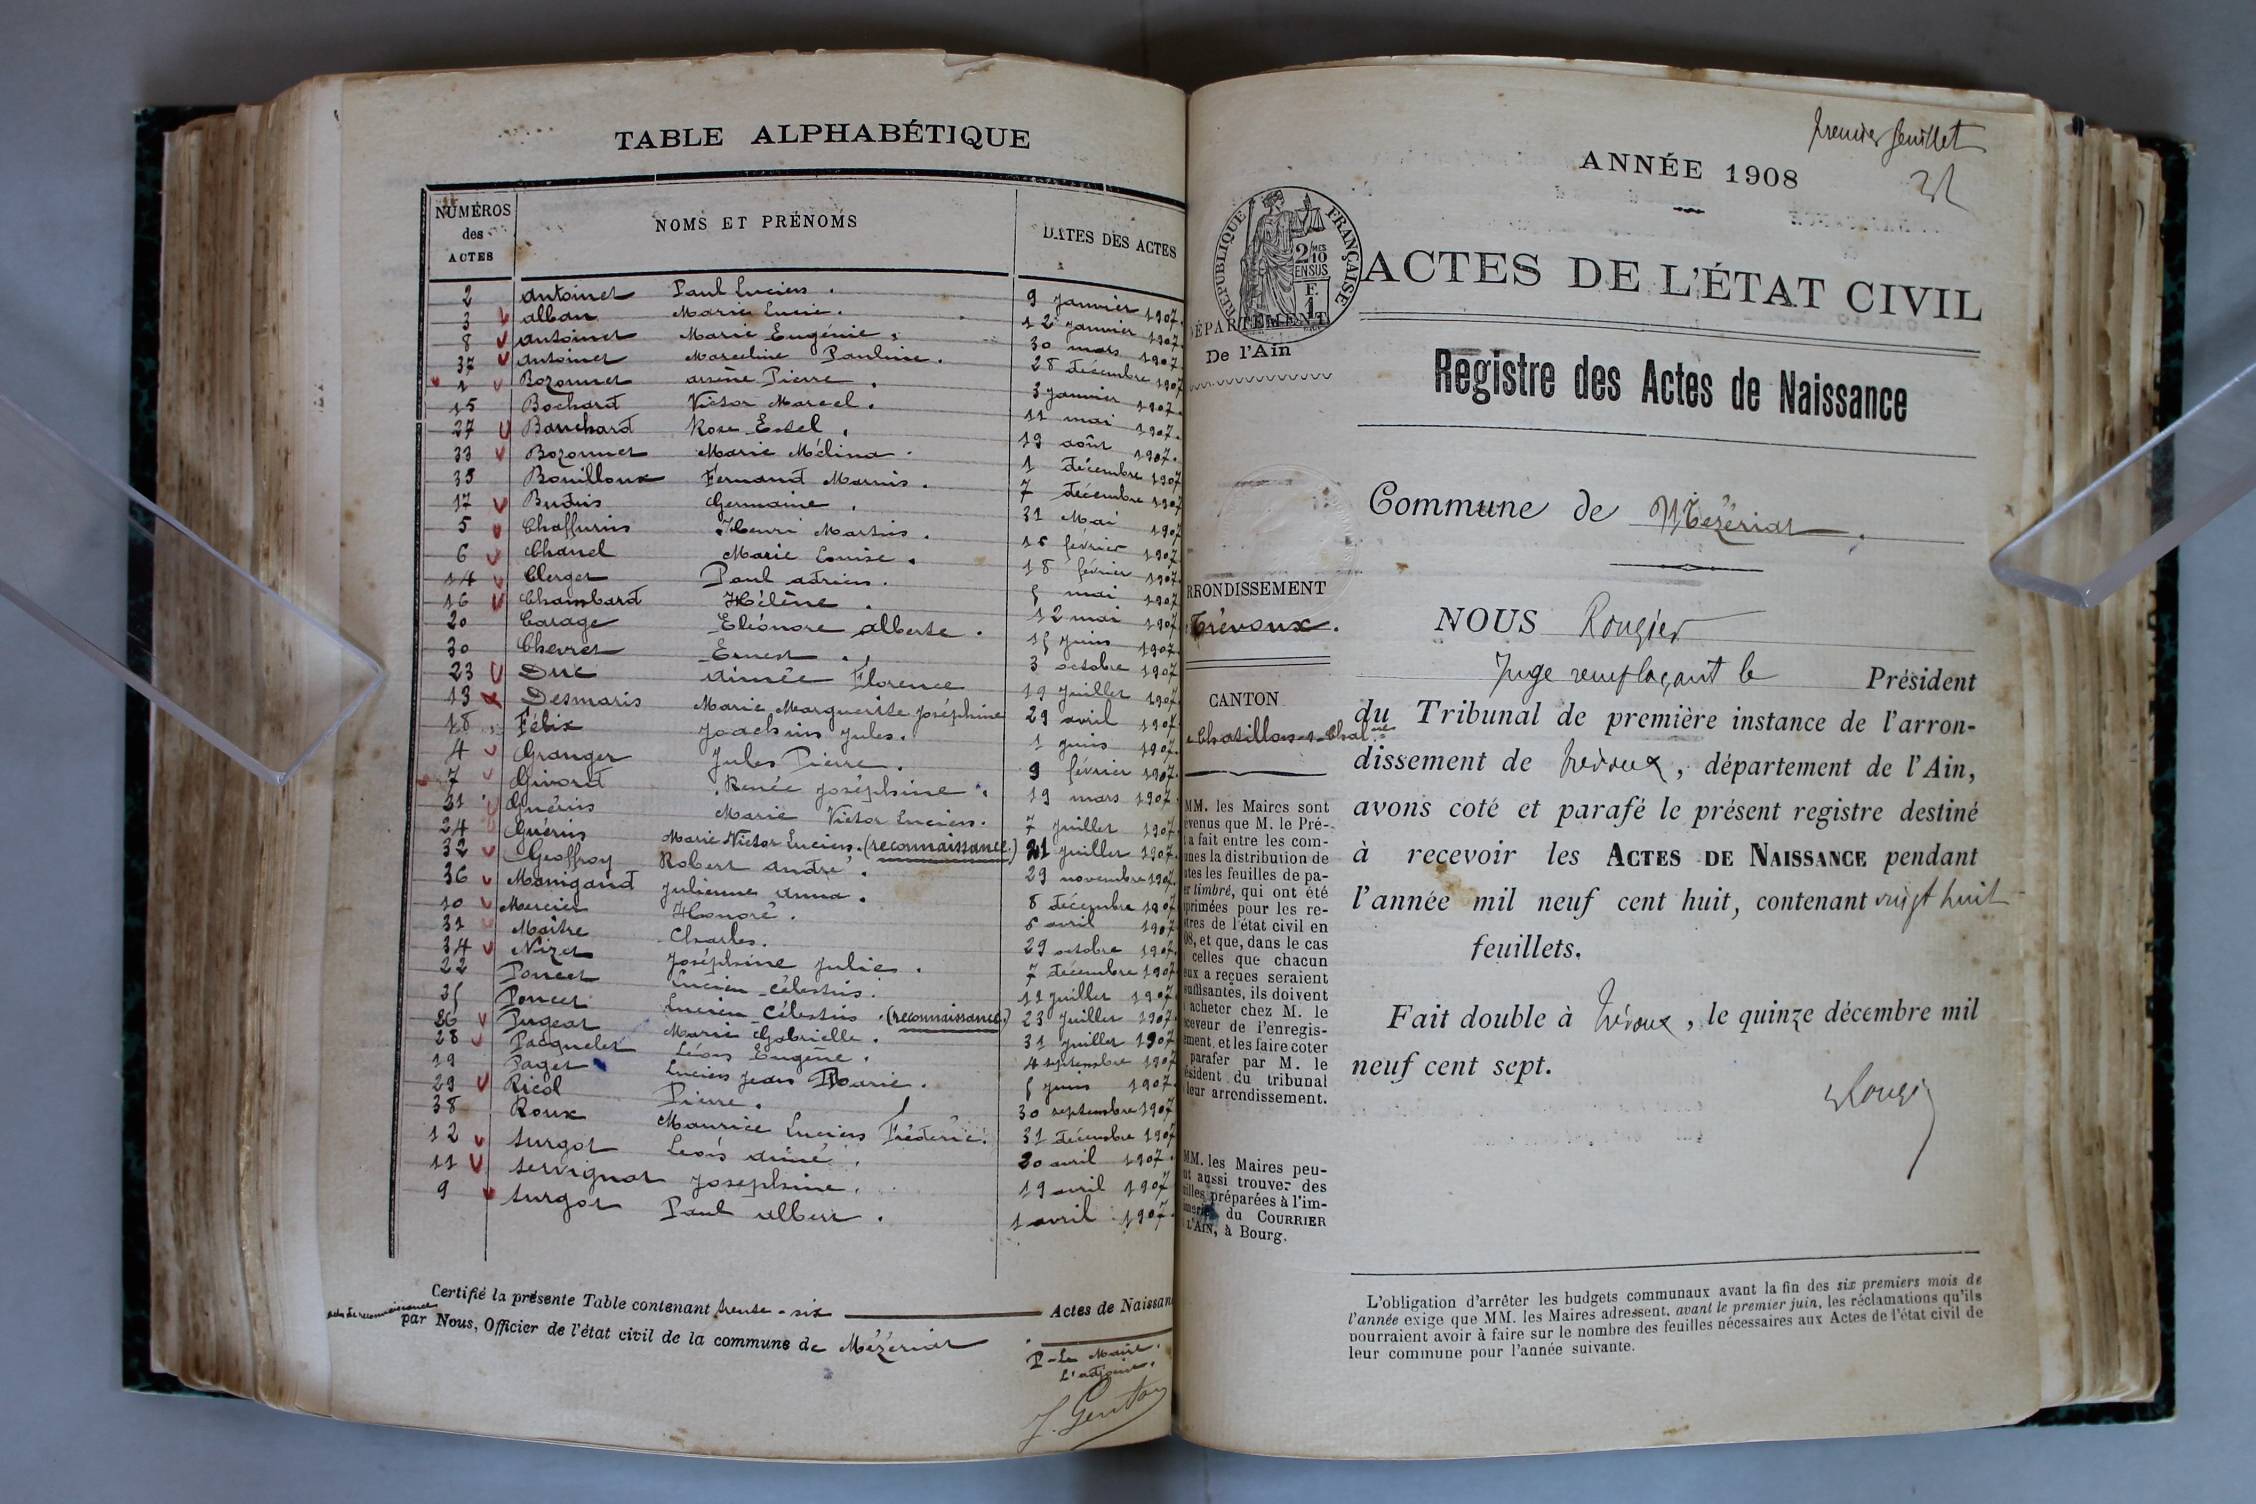 TABLE ALPHABÉTIQUE
NUMÉROS des ACTES NOMS ET PRÉNOMS DATES DES ACTES
2 Antoinet Paul Lucien. 9 janvier 1907.
3 Alban Marie Lucie. 12 janvier 1907.
8 Antoinet Marie Eugénie. 30 mars 1907
37 Antoinet Marceline Pauline. 28 décembre 1907
1 Bozonnet Arsène Pierre. 3 janvier 1907.
15 Bochard Victor Marcel. 11 mai 1907.
27 Banchard Rose Estel. 19 août 1907.
33 Bozonnet Marie Mélina. 1 décembre 1907
35 Bouilloux Fernand Marius. 7 décembre 1907
17 Buduis Germaine. 31 Mai 1907
5 Chaffurin Henri Martin. 16 février 1907
6 Chanel Marie Louise. 18 février 1907
14 Clerget Paul Adrien. 5 mai 1907
16 Chambard Hélène. 12 mai 1907
20 Carage Eléonore Alberte. 15 juin 1907
30 Chevret Ernest. 3 octobre 1907
23 Duc Aimée Florence 19 juillet 1907
13 Desmaris Marie Marguerite Joséphine 29 avril 1907
18 Félix Joachim Jules. 1 juin 1907.
4 Granger Jules Pierre. 9 février 1907
7 Givord Renée Joséphine. 19 mars 1907
21 Guérin Marie Victor Lucien. 7 juillet 1907.
24 Guérin Marie Victor Lucien. (reconnaissance) 21 juillet 1907.
32 Geoffroy Robert André. 29 novembre 1907.
36 Manigand Julienne Anna. 8 décembre 1907
10 Mercier Honoré. 6 avril 1907
31 Maître Charles. 29 octobre 1907.
34 Nizet Joséphine Julie. 7 décembre 1907
22 Poncet Lucien Célestin. 12 juillet 1907
25 Poncet Lucien Célestin. (reconnaissance) 23 juillet 1907
26 Pugeat Marie Gabrielle. 31 juillet 1907
28 Pacquelet Léon Eugène. 4 septembre 1907
19 Paget Lucien Jean Marie. 5 juin 1907.
29 Ricol Pierre. 30 septembre 1907
38 Roux Maurice Lucien Fréderic. 31 décembre 1907
12 Surgot Léon Aimé. 20 avril 1907.
11 Servignat Josephine. 19 avril 1907
9 Surgot Paul Albert. 1 avril 1907.
Certifié la présente Table contenant trente-six Actes de Naissan
par Nous, Officier de l'état civil de la commune de Mézériat
P. Le Maire.
L'adjoint.
J. Genton
premier feuillet
ANNÉE 1908
RÉPUBLIQUE FRANÇAISE
2/10 MES
EN SUS
F.
1
ACTES DE L'ÉTAT CIVIL
ÉPARTEMENT
De l'Ain
Registre des Actes de Naissance
Commune de Mézériat.
RRONDISSEMENT
Trévoux.
CANTON
Chatillon-s-Chalne
NOUS Rougier
Juge remplaçant le Président
du Tribunal de première instance de l'arron-
dissement de Trévoux, département de l'Ain,
avons coté et parafé le présent registre destiné
à recevoir les ACTES DE NAISSANCE pendant
l'année mil neuf cent huit, contenant vingt huit
feuillets.
Fait double à Trévoux, le quinze décembre mil
neuf cent sept.
Rougier
MM. les Maires sont
évenus que M. le Pré-
a fait entre les com-
unes la distribution de
utes les feuilles de pa-
er timbré, qui ont été
primées pour les re-
stres de l'état civil en
08, et que, dans le cas
celles que chacun
eux a reçues seraient
suffisantes, ils doivent
acheter chez M. le
ceveur de l'enregis-
ement, et les faire coter
parafer par M. le
ésident du tribunal
leur arrondissement.
MM. les Maires peu-
nt aussi trouver des
uilles préparées à l'im-
imerie du COURRIER
L'AIN, à Bourg.
L'obligation d'arrêter les budgets communaux avant la fin des six premiers mois de
l'année exige que MM. les Maires adressent, avant le premier juin, les réclamations qu'ils
pourraient avoir à faire sur le nombre des feuilles nécessaires aux Actes de l'état civil de
leur commune pour l'année suivante.